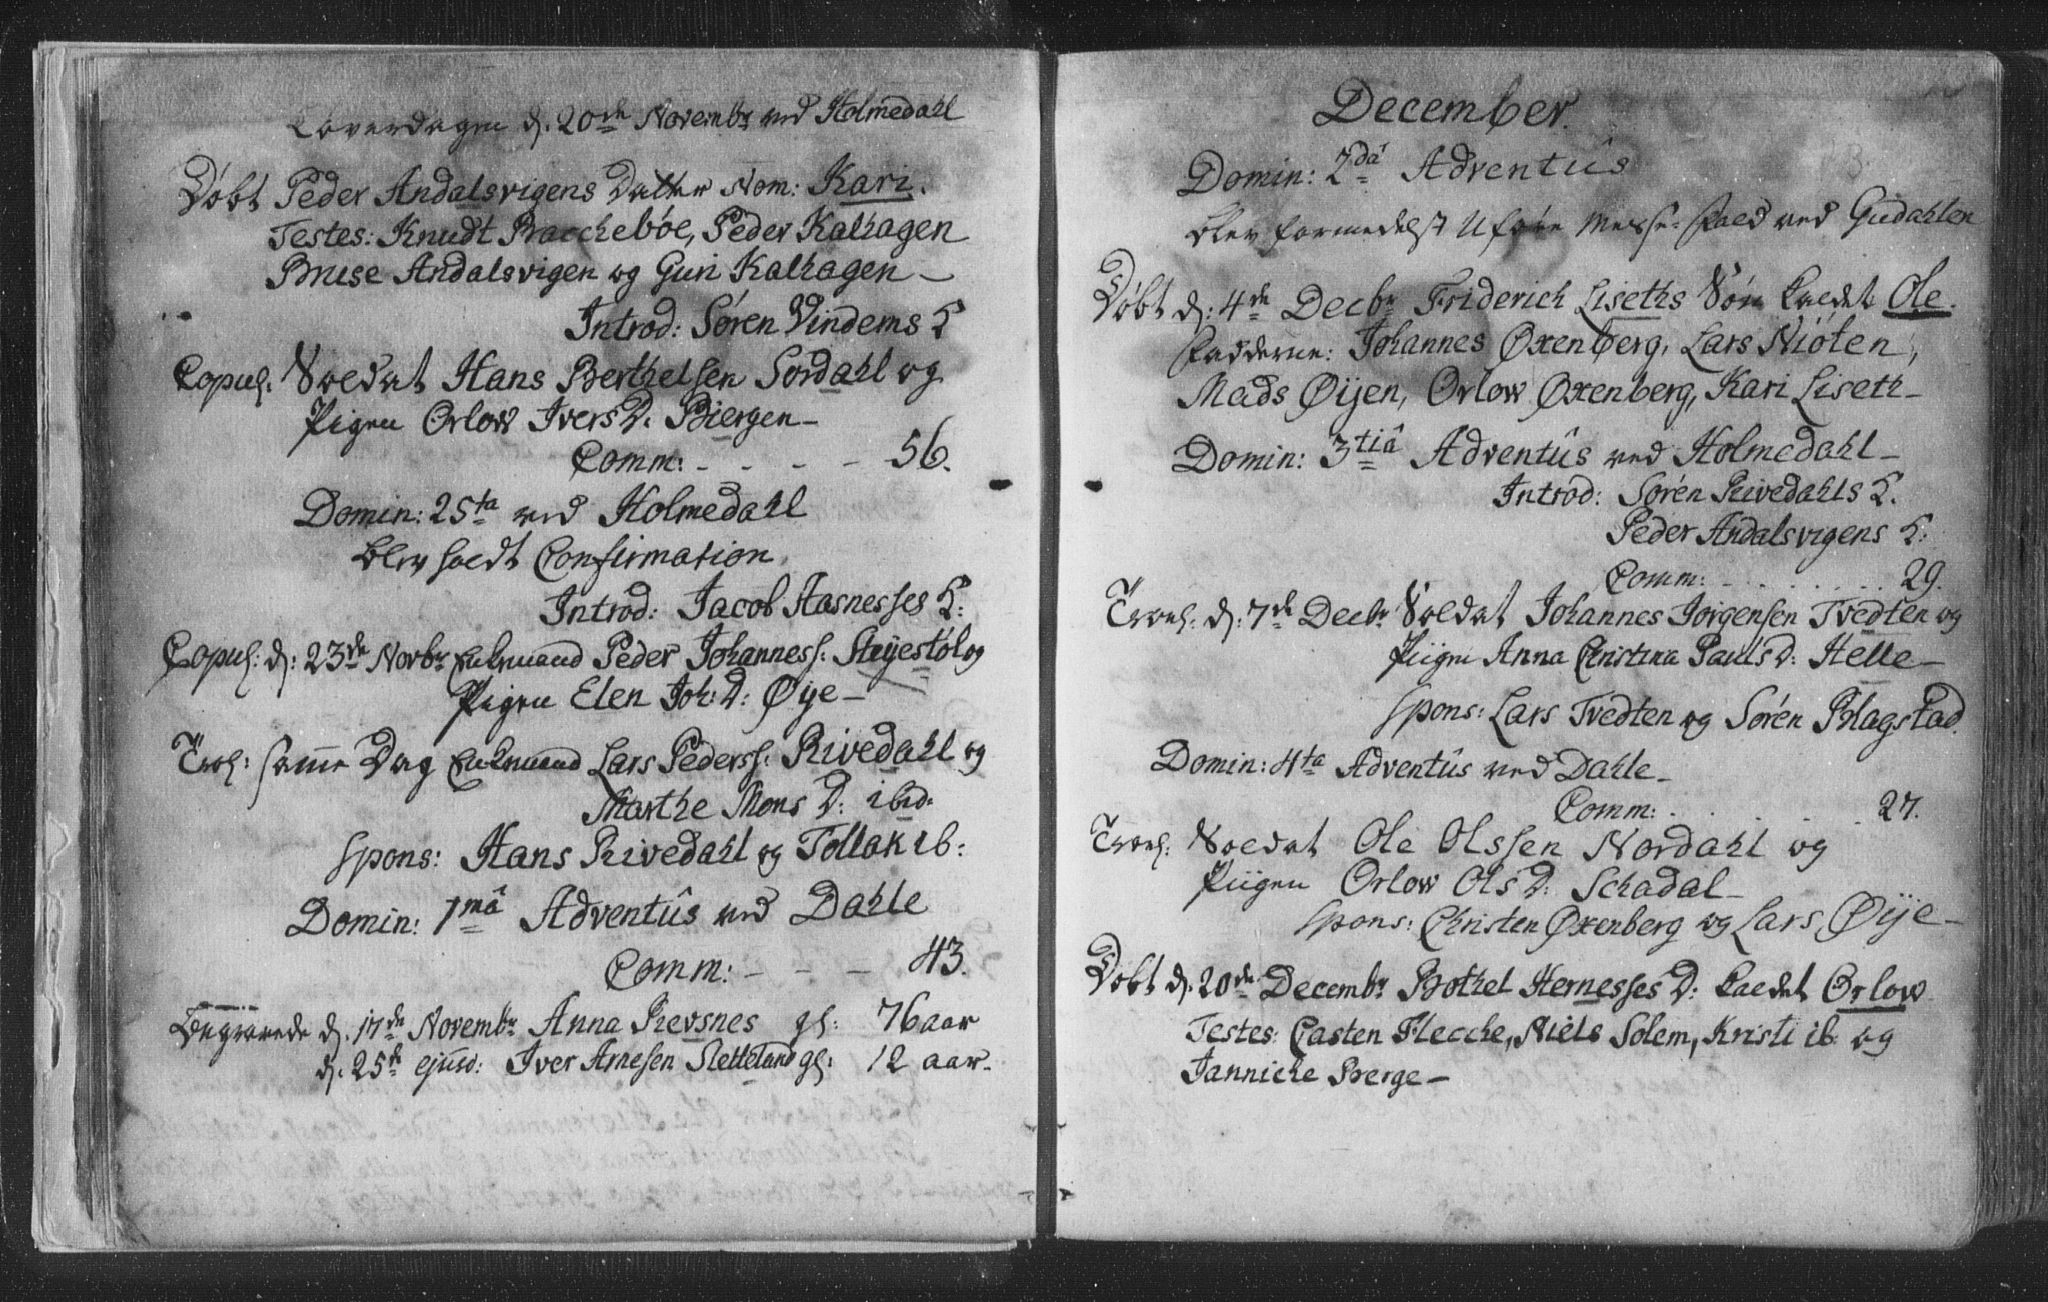 Løverdagen d. 20de Novembr ved Holmedahl
Døbt Peder Andalsvigens Datter Nom: Kari.
Testes: Knudt Bacchebøe, Peder Kalhagen
Bruse Andalsvigen og Guri Kalhagen –
Introd: Søren Vindems K
Copul: Soldat Hans Berthelsen Sordahl og
Pigen Orlow Ivers D. Biergen –
Comm: - - - - 56.
Domin: 25ta ved Holmedahl
blev holdt Confirmation
Introd: Jacob Hasnesses K:
Copul: d: 23de Novbr Enkemand Peder Johanness: Støyestøl og
Pigen Elen Joh: D: Øye –
Trol: samme Dag Enkemand Lars Pederss: Rivedahl og
Marthe Mons D: ibid:
Spons: Hans Rivedahl og Tollak ib:
Domin: 1mâ Adventûs ved Dahle
Comm: - - - 43.
Begravede d. 17de Novembr Anna Revsnes gl: 76 aar
d. 25de ejusd: Iver Arnesen Sletteland gl: 12 aar –
December.
Domin: 2dâ Adventûs
blev formedelst Uføre Messe-Fald ved Gudahlen
Døbt d: 4de Decbr Friderich Liseths Søn kaldet Ole.
Fadderne: Johannes Oxenberg, Lars Niøten,
Mads Øijen, Orlow Oxenberg, Kari Liseth –
Domin: 3tiâ Adventûs ved Holmedahl –
Introd: Søren Rivedahls K.
Peder Andalsvigens K:
Comm: . . . . . . 29.
Trol: d. 7de Decbr Soldat Johannes Jørgensen Tvedten og
Piigen Anna Christina Pauls D: Helle –
Spons: Lars Tvedten og Søren Blagstad.
Domin: 4ta Adventûs ved Dahle –
Comm: . . . . . 27.
Trol: Soldat Ole Olssen Nordahl og
Piigen Orlow Ols D: Schadal –
Spons: Christen Oxenberg og Lars Øije –
Døbt d. 20de Decembr Bothel Hernesses D: kaldet Orlow
Testes: Casten Flecche, Niels Solem, Kristi ib: og
Janniche Berge –